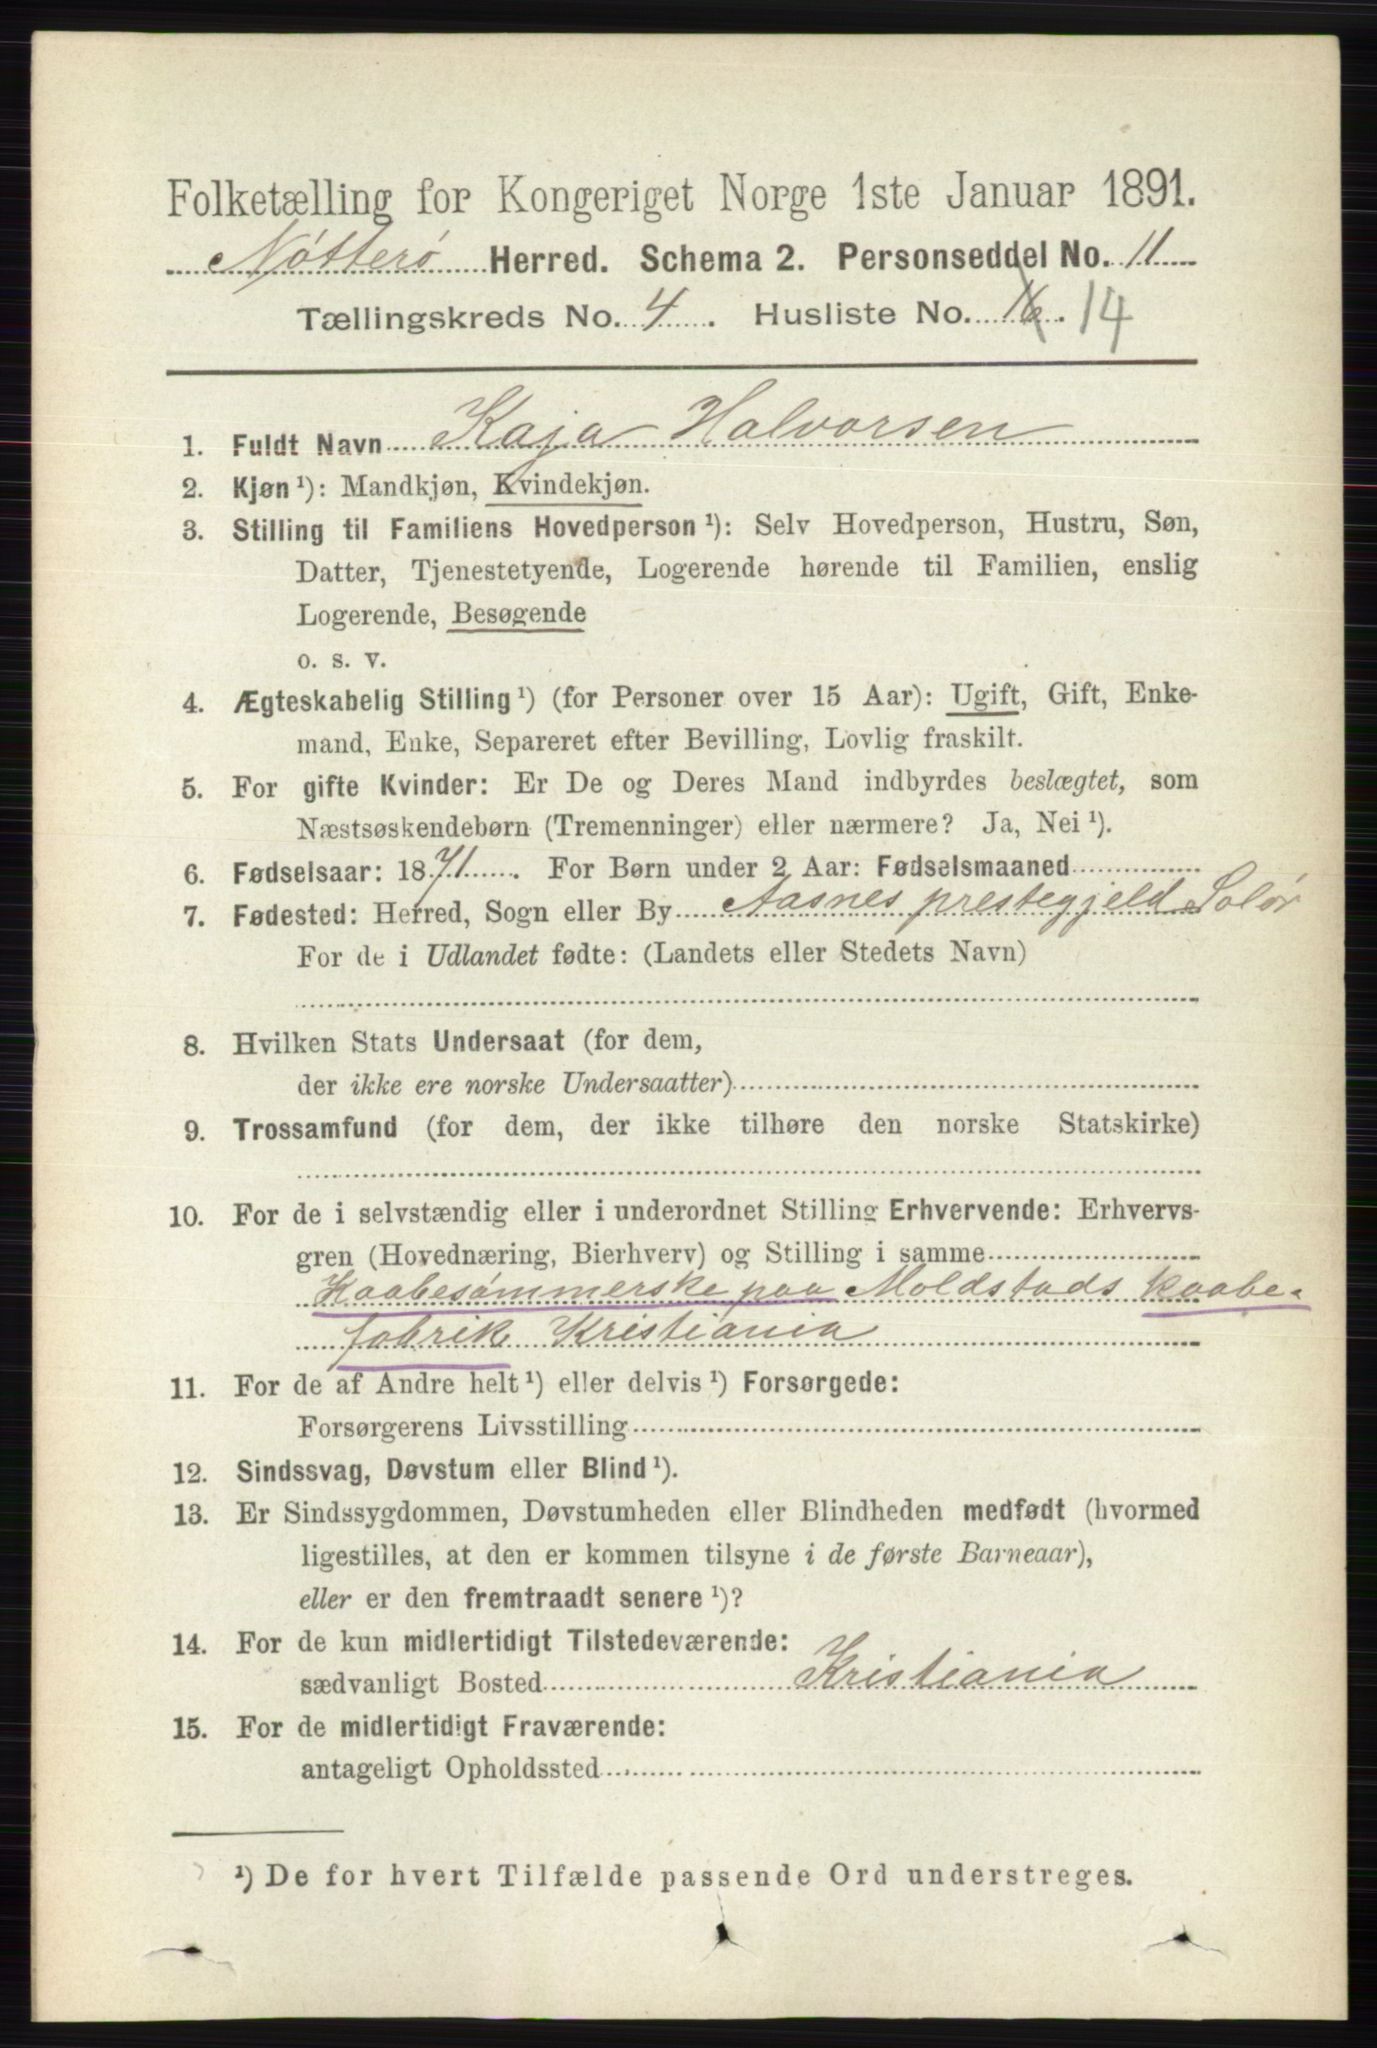 Folketælling for Kongeriget Norge 1ste Januar 1891.
Nøtterø Herred. Schema 2. Personseddel No. 11
Tællingskreds No. 4. Husliste No. 16. 14
1. Fuldt Navn Kaja Halvorsen
2. Kjøn ¹): Mandkjøn, Kvindekjøn.
3. Stilling til Familiens Hovedperson ¹): Selv Hovedperson, Hustru, Søn,
Datter, Tjenestetyende, Logerende hørende til Familien, enslig
Logerende, Besøgende
o. s. v.
4. Ægteskabelig Stilling ¹) (for Personer over 15 Aar): Ugift, Gift, Enke-
mand, Enke, Separeret efter Bevilling, Lovlig fraskilt.
5. For gifte Kvinder: Er De og Deres Mand indbyrdes beslægtet, som
Næstsøskendebørn (Tremenninger) eller nærmere? Ja, Nei ¹).
6. Fødselsaar: 1871. For Børn under 2 Aar: Fødselsmaaned
7. Fødested: Herred, Sogn eller By Aasnes prestegjeld Solør
For de i Udlandet fødte: (Landets eller Stedets Navn)
8. Hvilken Stats Undersaat (for dem,
der ikke ere norske Undersaatter)
9. Trossamfund (for dem, der ikke tilhøre den norske Statskirke)
10. For de i selvstændig eller i underordnet Stilling Erhvervende: Erhvervs-
gren (Hovednæring, Bierhverv) og Stilling i samme
Kaabesømmerske paa Moldstads kaabe-
fabrik Kristiania
11. For de af Andre helt ¹) eller delvis ¹) Forsørgede:
Forsørgerens Livsstilling
12. Sindssvag, Døvstum eller Blind ¹).
13. Er Sindssygdommen, Døvstumheden eller Blindheden medfødt (hvormed
ligestilles, at den er kommen tilsyne i de første Barneaar),
eller er den fremtraadt senere ¹)?
14. For de kun midlertidigt Tilstedeværende:
sædvanligt Bosted Kristiania
15. For de midlertidigt Fraværende:
antageligt Opholdssted
¹) De for hvert Tilfælde passende Ord understreges.